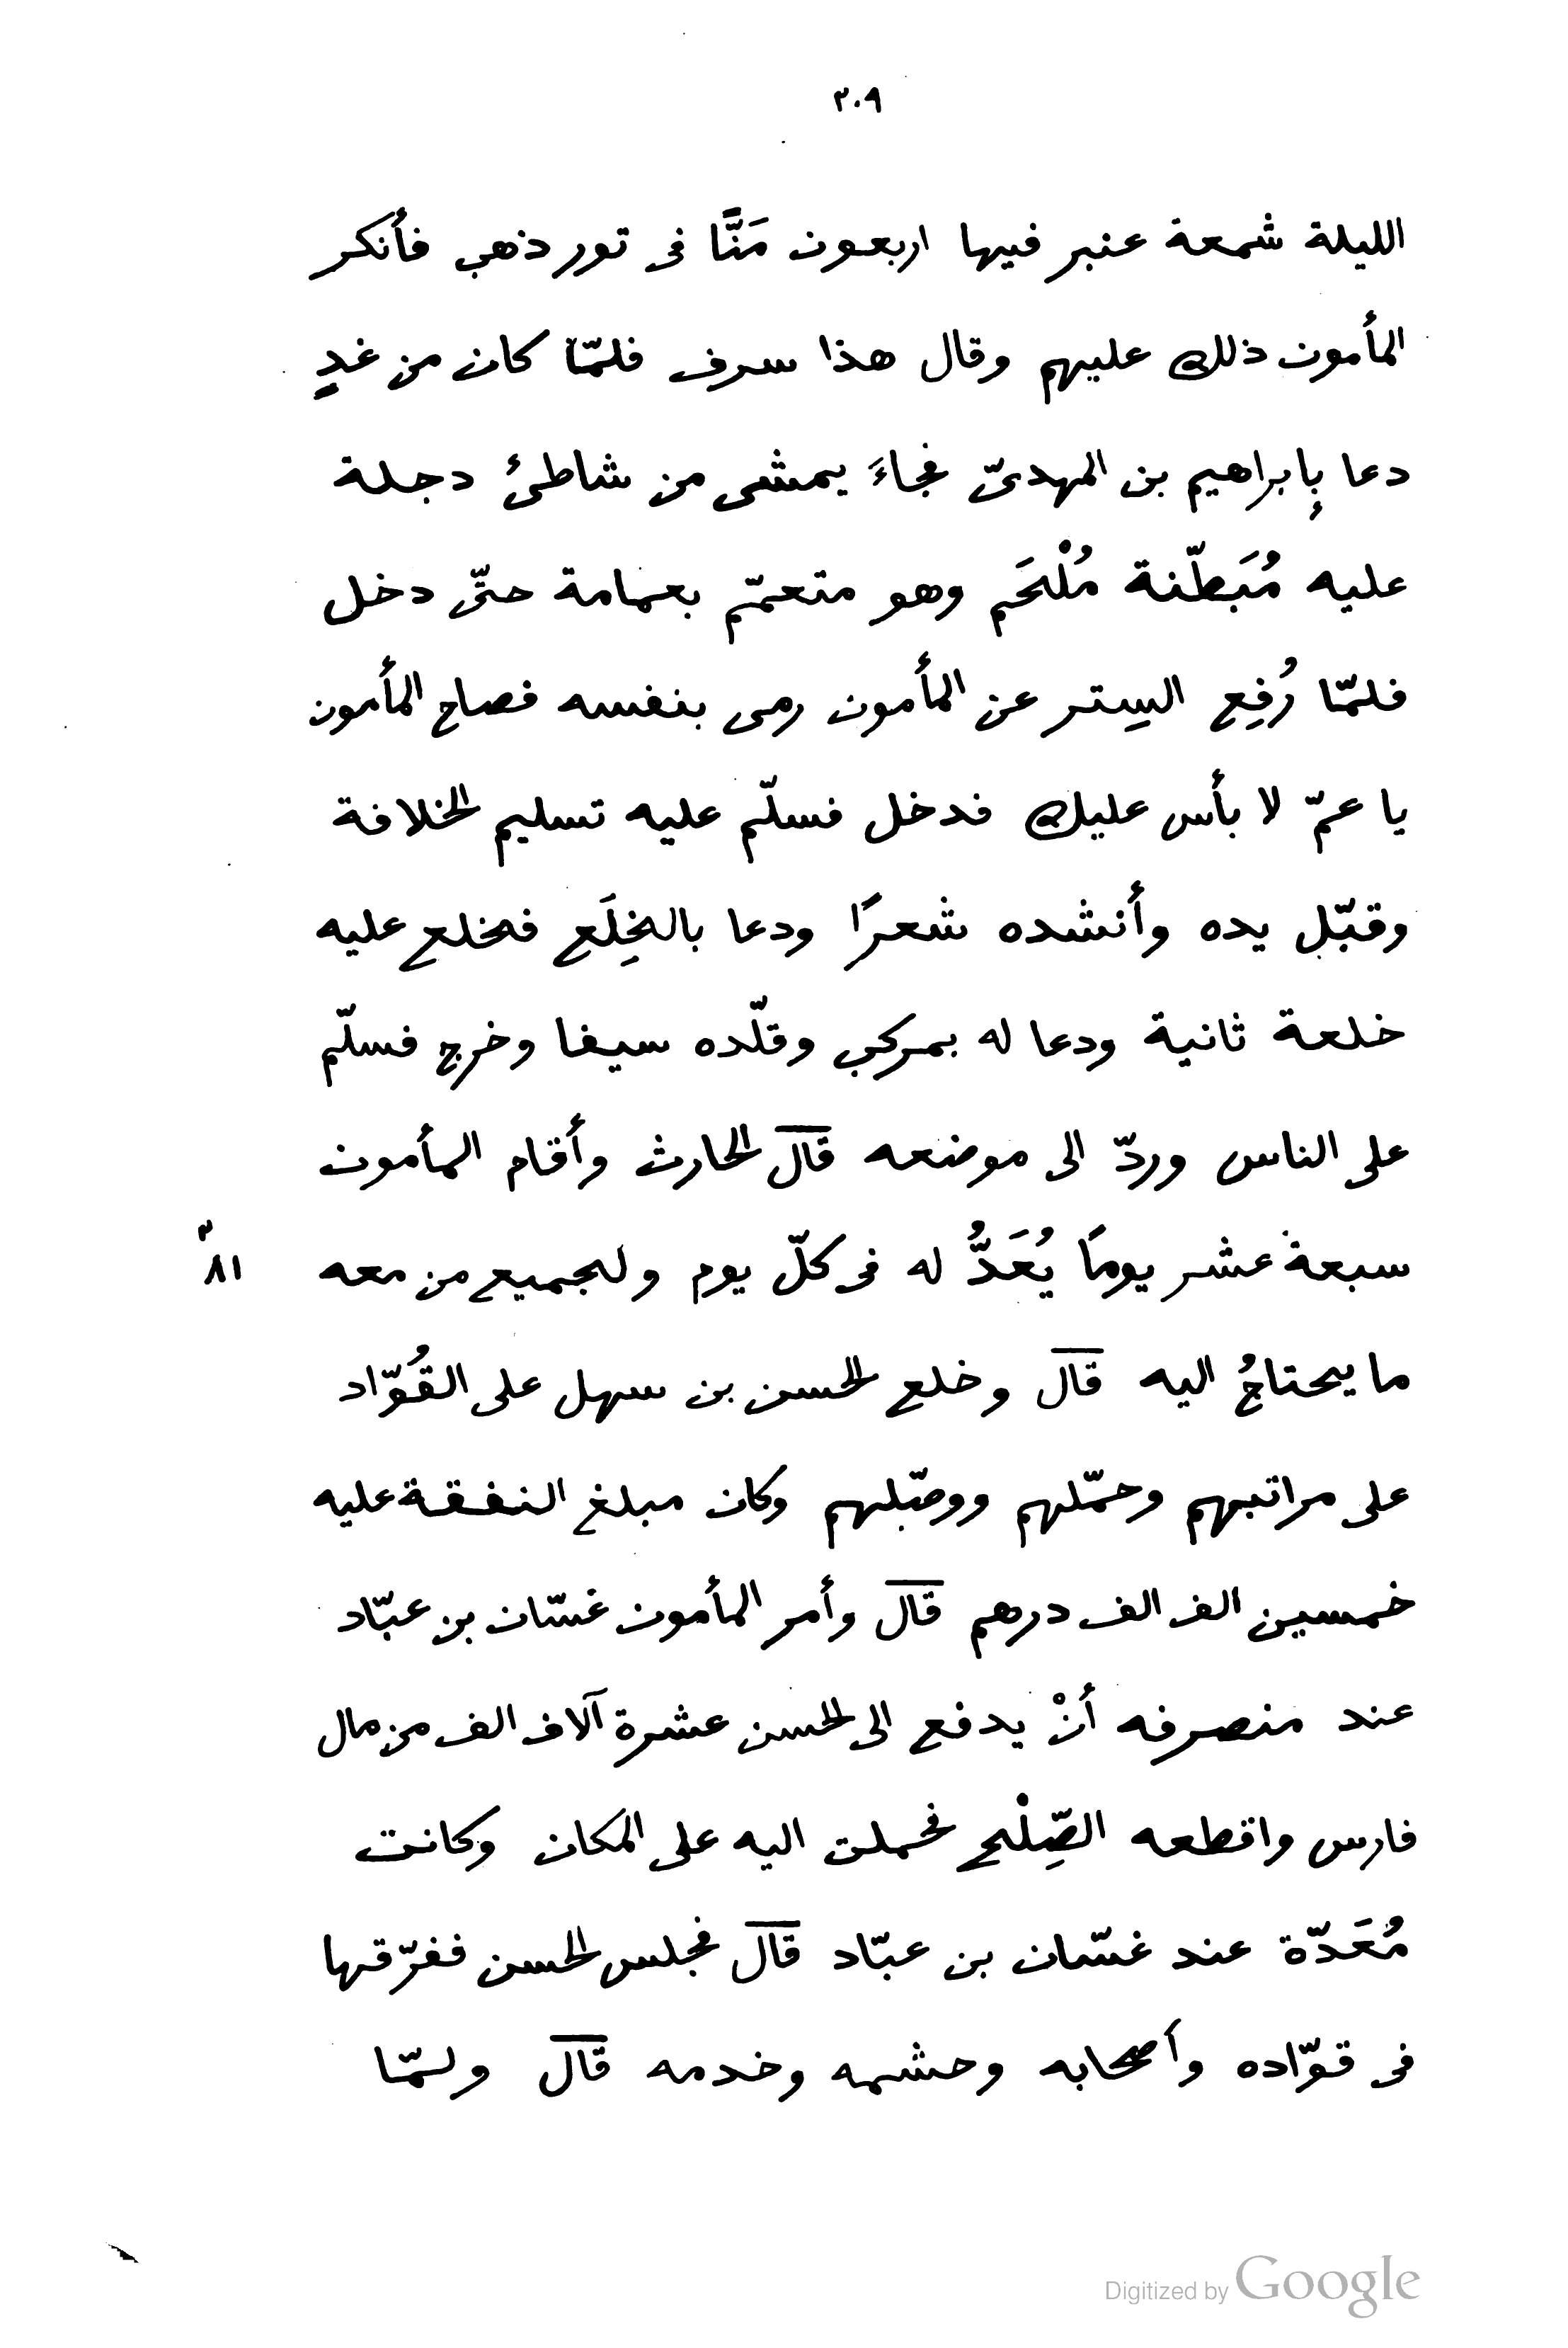 ٢٠٩
الليلة شمعة عنبر فيها اربعون مَنًّا فى تور ذهب فأنكر
المأمون ذلك عليهم وقال هذا سرف فلمّا كان من غدٍ
دعا بإبراهيم بن المهدىّ فجاءَ يمشى من شاطئ دجلة
عليه مُبَطّنة مُلْحَم وهو متعمّم بعمامة حتّى دخل
فلمّا رُفِع السِتر عن المأمون رمى بنفسه فصاح المأمون
يا عمّ لا بأس عليك فدخل فسلّم عليه تسليم الخلافة
وقبّل يده وأنشده شعرًا ودعا بالخِلَع فخلع عليه
خلعة ثانية ودعا له بمركب وقلّده سيفا وخرج فسلّم
على الناس وردّ الى موضعه قال الحارث وأقام المأمون
سبعة عشر يومًا يُعَدُّ له فى كلّ يوم ولجميع من معه
٨١
ما يحتاجُ اليه قال وخلع الحسن بن سهل على القُوّاد
على مراتبهم وحمّلهم ووصّلهم وكان مبلغ النفقة عليه
خمسين الف الف درهم قال وأمر المأمون غسّان بن عبّاد
عند منصرفه أنْ يدفع الى الحسن عشرة آلاف الف من مال
فارس واقطعه الصِّلْح فحملت اليه على المكان وكانت
مُعَدّة عند غسّان بن عبّاد قال فجلس الحسن ففرّقها
فى قوّاده وأصحابه وحشمه وخدمه قال ولمّا
Digitized by Google